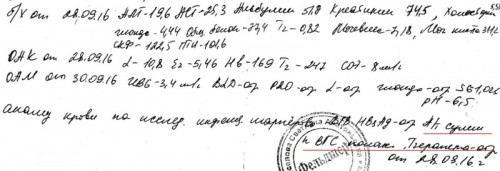 б/х от 28.09.16 АЛТ-19,6 АСТ-25,3 Альбумин 51,8 Креатинин 74,5, Холестерин 3,51
глюкоза-4,44 Общ белок-77,4 Тг-0,82 Мочевина-7,18, Моч кислота 311,2
СКФ-122,5 ПТИ-101,6
ОАК от 28.09.16 L-10,8 Er-5,46 Hb-169 Tr-247 СОЭ-8 мм/ч
ОАМ от 30.09.16 BLD-отр PRO-отр L-отр глюкоза-отр SG 1,026
pH-6,5
анализ крови на исслед. маркеров HBsAg-отр Ат сумм
к ВГС отр
от 28.09.16 г
Фельдшер